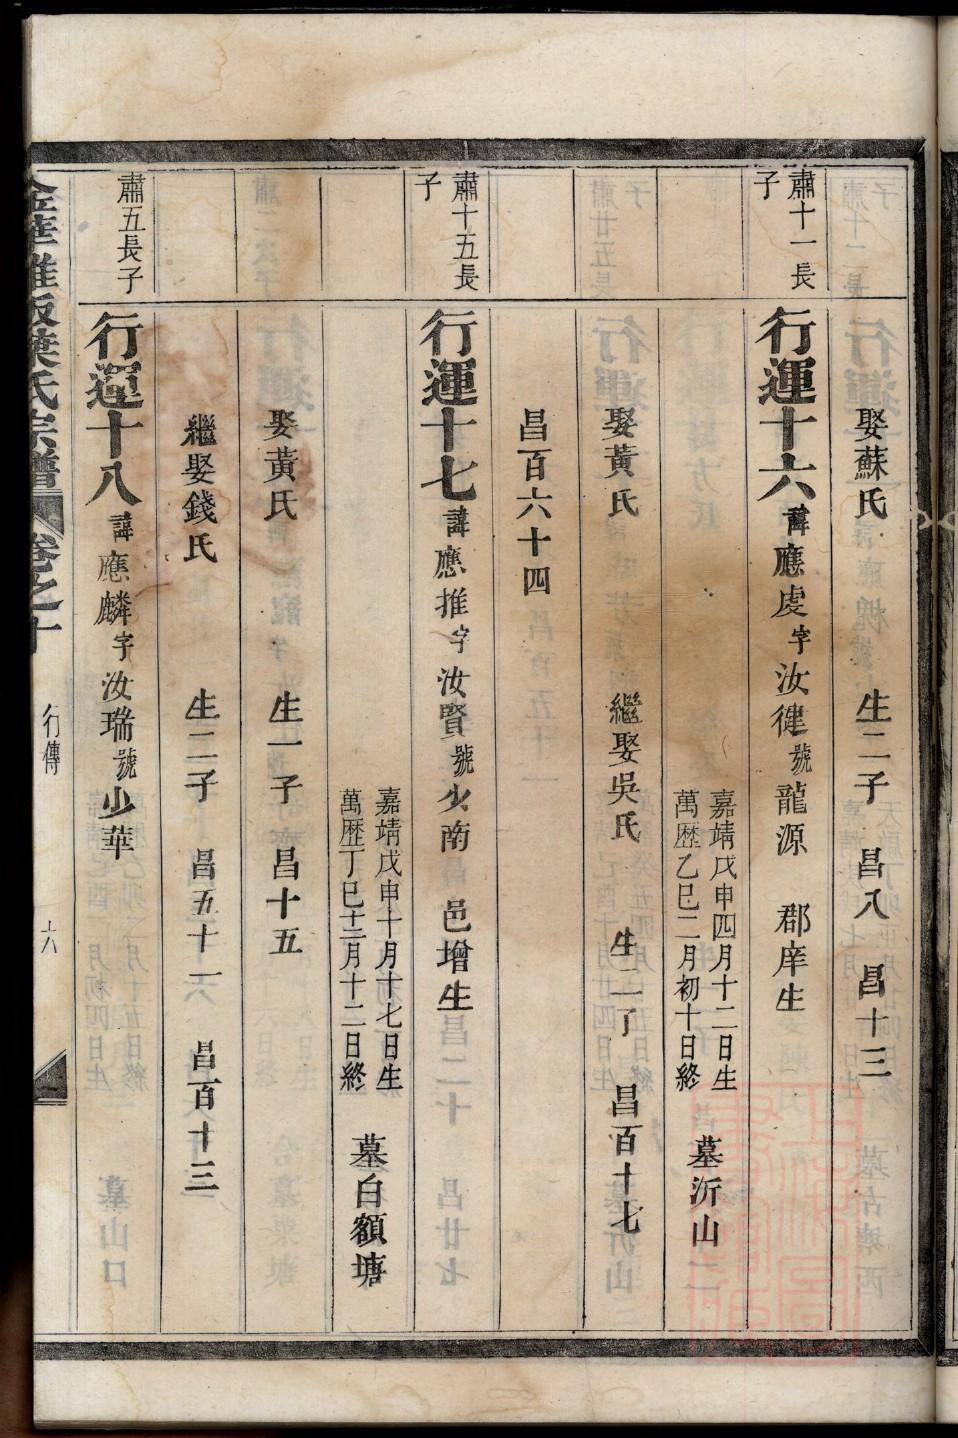 娶蘇氏 生二子 昌八 昌十三
肅十一長子
行運十六 諱應虔字汝健號龍源 郡庠生
嘉靖戊申四月十二日生
萬歷乙巳二月初十日終
墓沂山
娶黃氏 繼娶吳氏 生二子 昌百十七
昌百六十四
肅十五長子
行運十七 諱應推字汝賢號少南 邑增生
嘉靖戊申十月十七日生
萬歷丁巳十二月十二日終
墓白額塘
娶黃氏 生一子 昌十五
繼娶錢氏 生二子 昌五十六 昌百十三
肅五長子
行運十八 諱應麟字汝瑞號少華
葉氏宗譜 卷之十 行傳 六